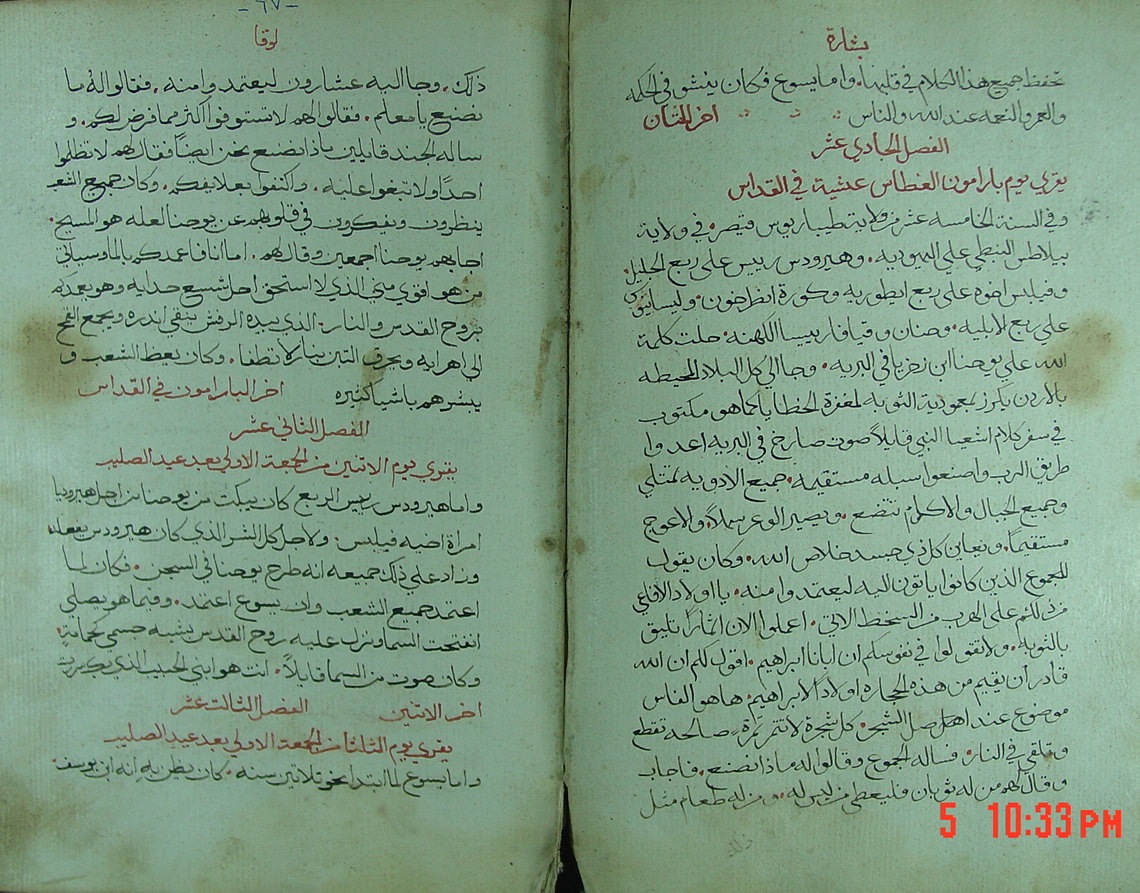 بشارة
تحفظ جميع هذا الكلام في قلبها. واما يسوع فكان ينشو في الحكمه
والعمر والنعمه عند الله والناس اخر الختان
الفصل الحادي عشر
يقري يوم بارامون الغطاس عشية في القداس
وفي السنة الخامسه عشر من ولاية طيباريوس قيصر. في ولاية
بيلاطس النبطي علي اليهوديه. وهيرودس رييس علي ربع الجليل.
وفيلبس اخوه علي ربع ايطوريه وكورة انطراخون. وليسانيوس
علي ربع الابليه. وحنان وقيافا رييسا الكهنه. حلت كلمة
الله علي يوحنا ابن زخريا في البريه. وجا الي كل البلاد المحيطه
بالاردن يكرز بمعمودية التوبه لمغفرة الخطايا كما هو مكتوب
في سفر كلام اشعيا النبي قايلاً صوت صارخ في البريه اعدوا
طريق الرب واصنعوا سبله مستقيمه. جميع الاوديه تمتلي
وجميع الجبال والاكام تتضع. ويصير الوعر سهلاً. والاعوج
مستقيماً. ويعاين كل ذي جسد خلاص الله. وكان يقول
للجموع الذين كانوا ياتون اليه ليعتمدوا منه. يا اولاد الافاعي
من دلكم علي الهرب من السخط الاتي. اعملوا الان اثماراً تليق
بالتوبه. ولا تقولوا في نفوسكم ان ابانا ابراهيم. اقول لكم ان الله
قادر ان يقيم من هذه الحجاره اولاداً لابراهيم. ها هو الفاس
موضوع عند اصل الشجر. كل شجرة لا تثمر ثمرة صالحه تقطع
وتلقي في النار. فساله الجموع وقالوا له ماذا نصنع. فاجاب
وقال لهم من له ثوبان فليعطي من ليس له. ومن له طعام مثل
٦٧
لوقا
ذلك. وجا اليه عشارون ليعتمدوا منه. فقالوا له ما
نصنع يا معلم. فقال لهم لا تستوفوا اكثر مما فرض لكم. و
ساله الجند قايلين ماذا نصنع نحن ايضاً فقال لهم لا تظلموا
احداً ولا تبغوا عليه. واكتفوا بعلايفكم. وكان جميع الشعب
ينظرون ويفكرون في قلوبهم عن يوحنا لعله هو المسيح.
اجابهم يوحنا اجمعين وقال لهم. اما انا فاعمدكم بالما وسياتي
من هو اقوي مني الذي لا استحق احل شسع حدايه وهو يعمدكم
بروح القدس والنار. الذي بيده الرفش ينقي اندره ويجمع القمح
الي اهرايه ويحرق التبن بنار لا تطفا. وكان يعظ الشعب و
يبشرهم باشيا كثيره اخر البارامون في القداس
الفصل الثاني عشر
يقري يوم الاتنين من الجمعة الاولي بعد عيد الصليب
واما هيرودس رييس الربع كان يبكت من يوحنا من اجل هيروديا
امراة اخيه فيلبس. ولاجل كل الشر الذي كان هيرودس يفعله
وزاد علي ذلك جميعه انه طرح يوحنا في السجن. فكان لما
اعتمد جميع الشعب وان يسوع اعتمد. وفيما هو يصلي
انفتحت السما ونزل عليه روح القدس بشبه جسمي كحمامة.
وكان صوت من السما قايلاً. انت هو ابني الحبيب الذي بك سررت
اخر الاتنين الفصل الثالث عشر
يقري يوم الثلاثا من الجمعة الاولي بعد عيد الصليب
واما يسوع لما ابتدا بنحو تلاتين سنه. كان يظن به انه ابن يوسف.
5 10:33 PM